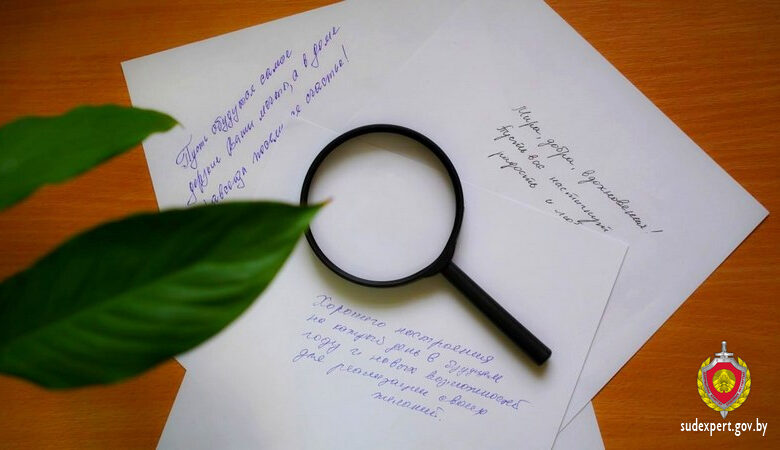 Пусть сбудутся самые
дерзкие Ваши мечты, а в доме
навсегда поселится счастье!
Мира, добра, вдохновения!
Пусть вас настигнут
радость и люб
Хорошего настроения
на каждый день в будущем
году и новых возможностей
для реализации своих
желаний.
sudexpert.gov.by